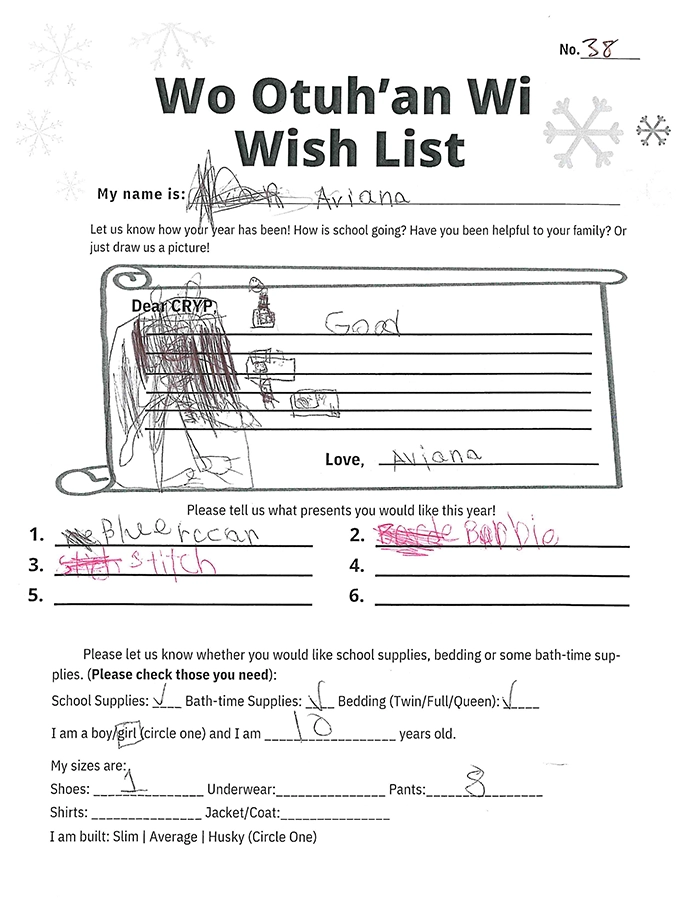 No. 38
Wo Otuh’an Wi
Wish List
My name is: Aviana
Let us know how your year has been! How is school going? Have you been helpful to your family? Or
just draw us a picture!
Dear CRYP,
Good
Love, Aviana
Please tell us what presents you would like this year!
1. Blue
2. Barbie
3. Stitch
4.
5.
6.
Please let us know whether you would like school supplies, bedding or some bath-time sup-
plies. (Please check those you need):
School Supplies: ✓ Bath-time Supplies: ✓ Bedding (Twin/Full/Queen): ✓
I am a boy/girl (circle one) and I am 10 years old.
My sizes are:
Shoes: 1 Underwear: Pants: 8
Shirts: Jacket/Coat:
I am built: Slim | Average | Husky (Circle One)